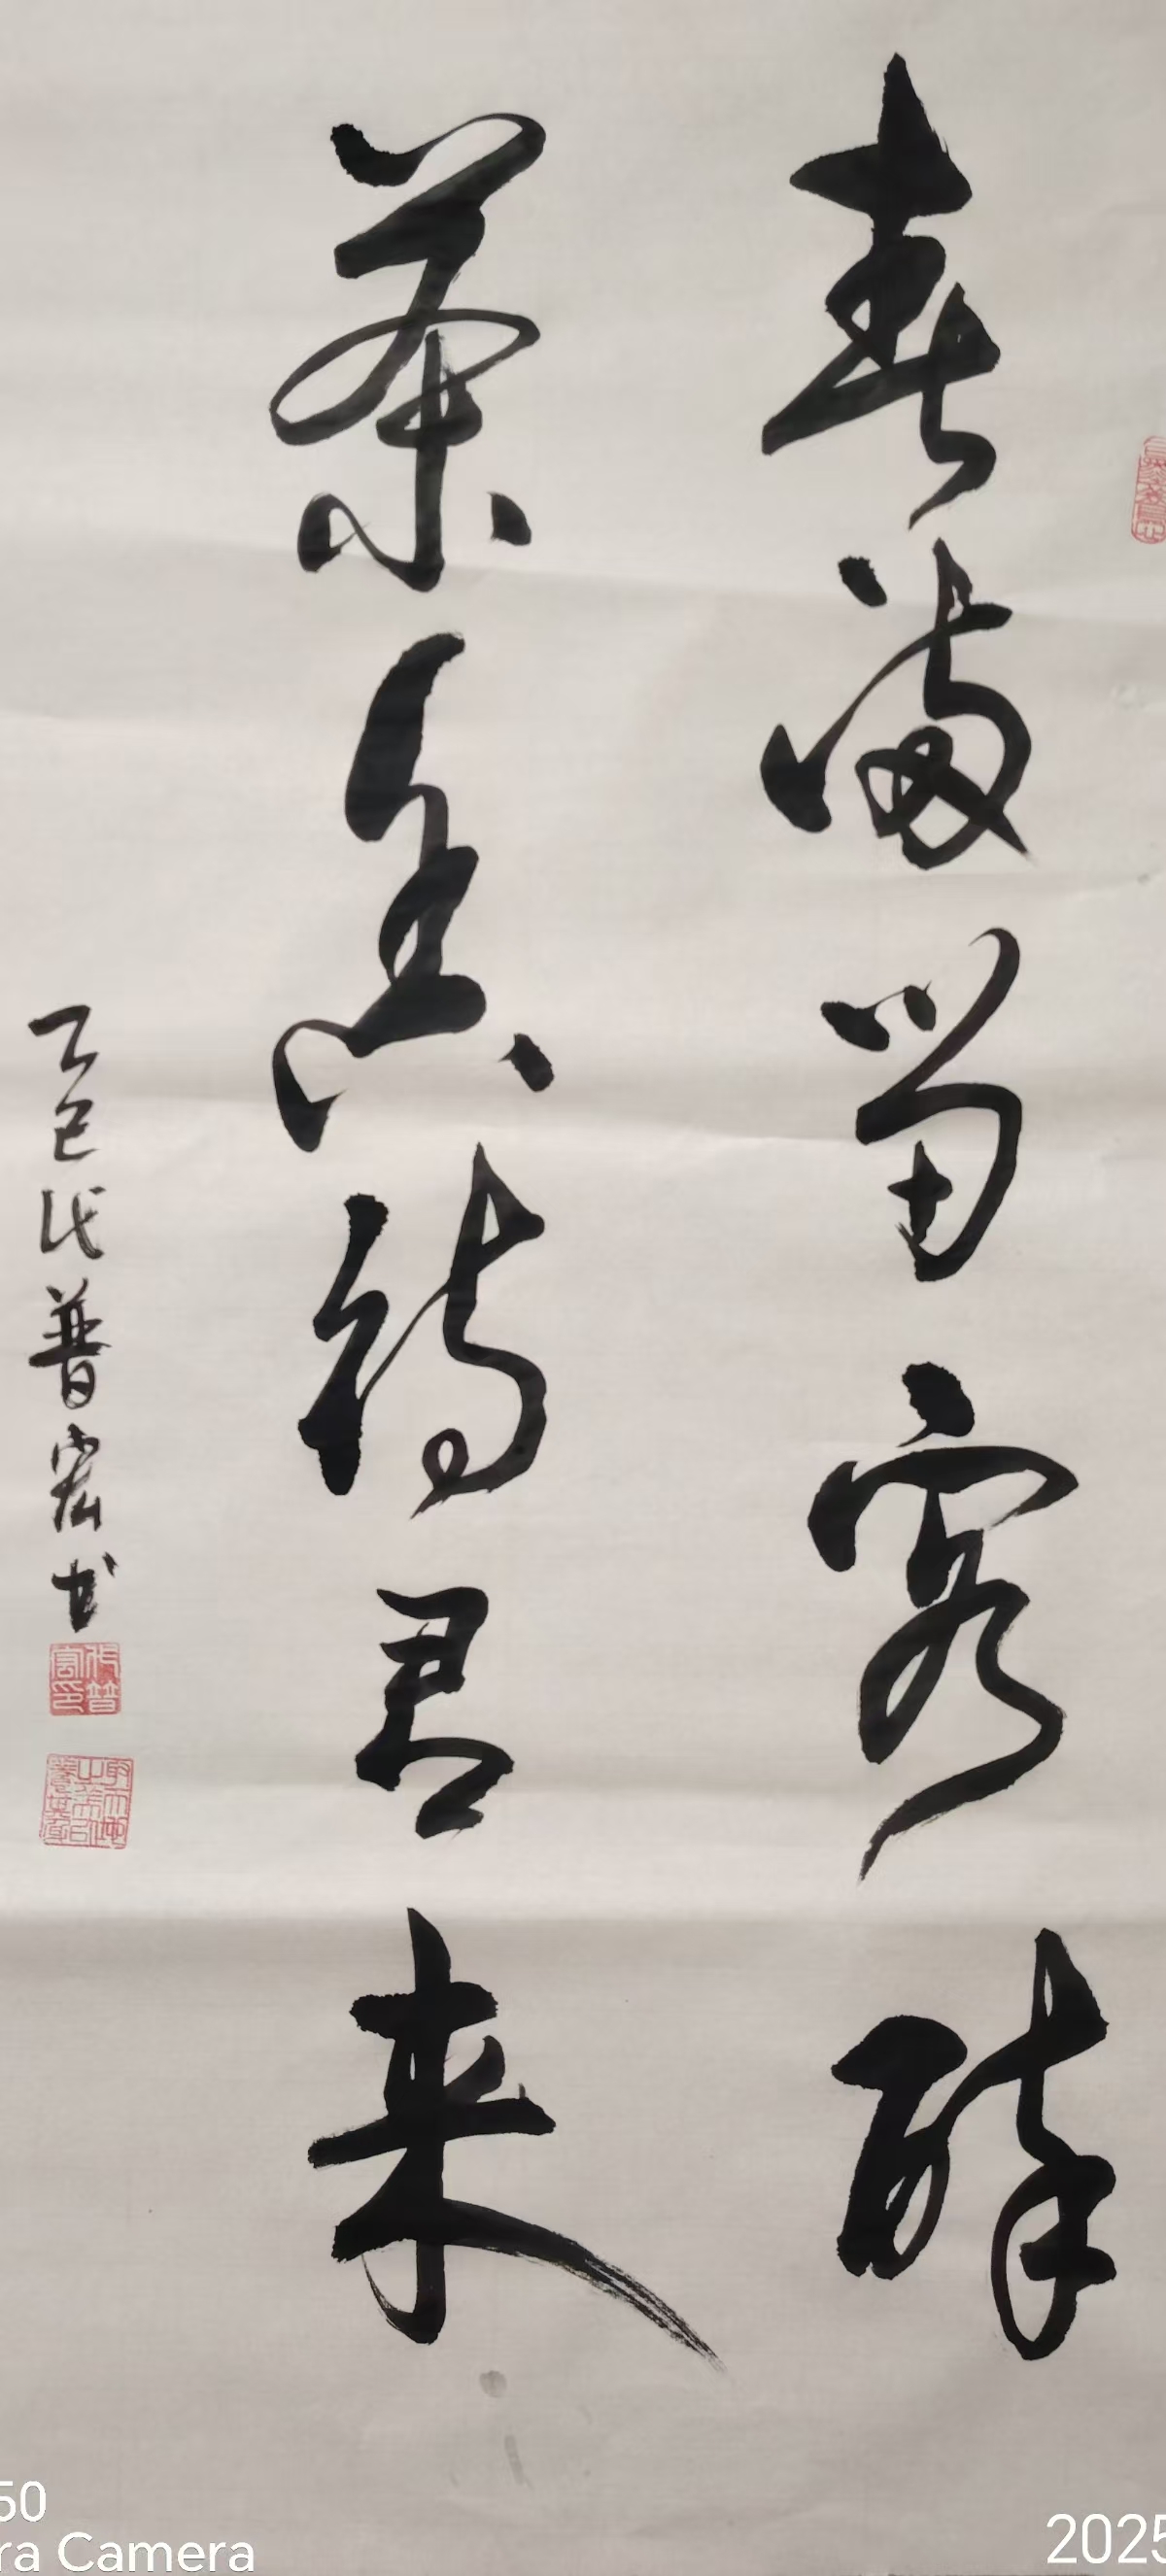 春满留客醉
茶香待君来
乙巳代普宏书
代普宏印
50
ra Camera
2025